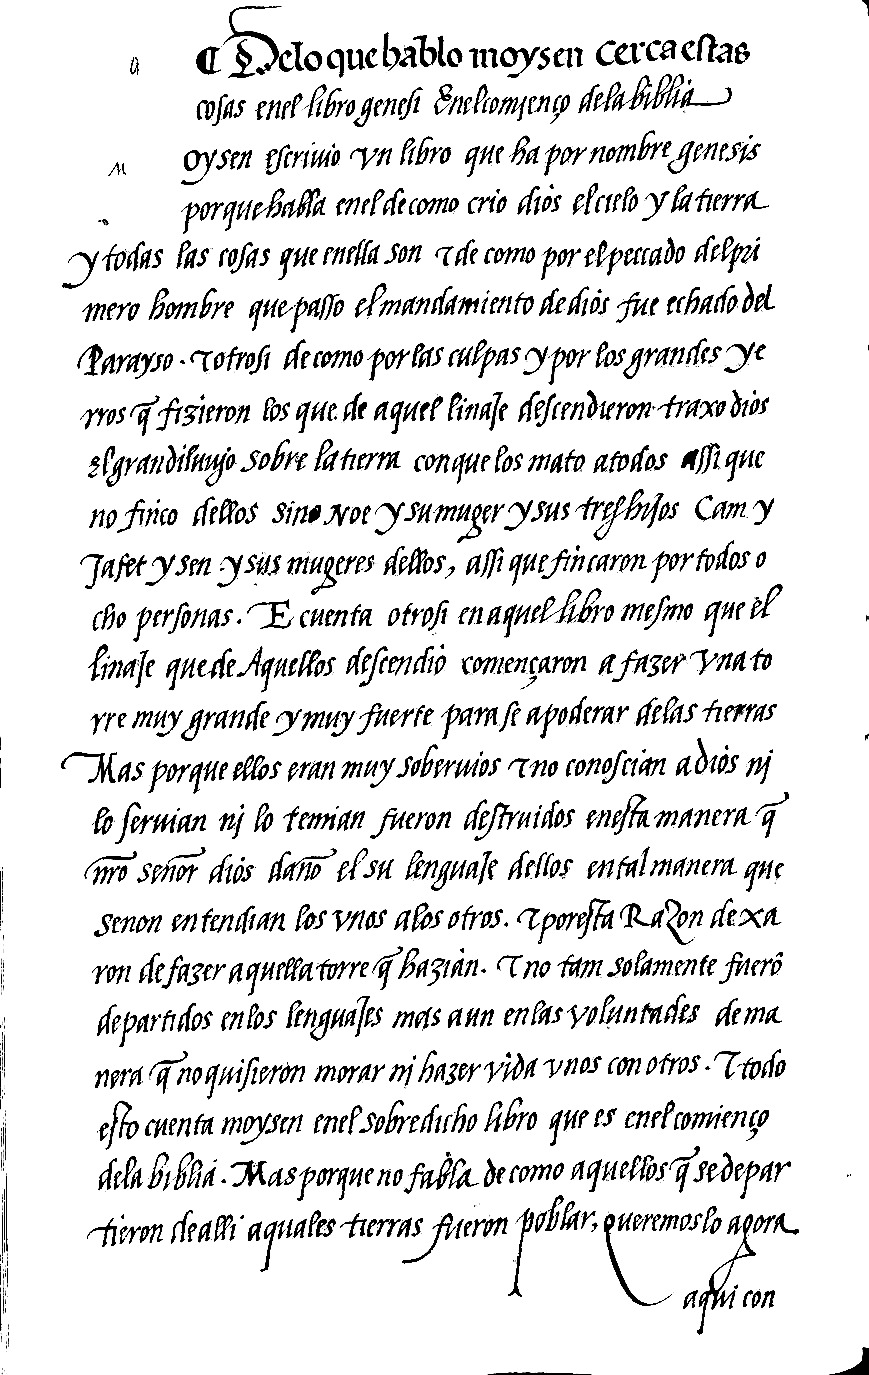 ¶ Delo que hablo moysen cerca estas
cosas enel libro genesi Enel comienço dela biblia
M oysen escriuio vn libro que ha por nombre genesis
porque habla enel de como crio dios el cielo y la tierra
y todas las cosas que enella son τ de como por el peccado del pri
mero hombre que passo el mandamiento de dios fue echado del
Parayso. τ otrosi de como por las culpas y por los grandes ye
rros q̃ fizieron los que de aquel linaje descendieron traxo dios
el gran diluujo sobre la tierra con que los mato a todos assi que
no finco dellos sino Noe y su muger y sus tres hijos Cam y
Jafet y sen y sus mugeres dellos, assi que fincaron por todos o
cho personas. E cuenta otrosi en aquel libro mesmo que el
linaje que de Aquellos descendio començaron a fazer vna to
rre muy grande y muy fuerte para se apoderar delas tierras
Mas porque ellos eran muy soberuios τ no conoscian a dios nj
lo seruian nj lo temian fueron destruidos enesta manera q̃
nr̃o señor dios daño el su lenguaje dellos en tal manera que
se non entendian los vnos a los otros. τ por esta Razon dexa
ron de fazer aquella torre q̃ hazian. τ no tam solamente fuerõ
departidos en los lenguajes mas aun en las voluntades de ma
nera q̃ no quisieron morar nj hazer vida vnos con otros. τ todo
esto cuenta moysen enel sobredicho libro que es enel comienço
dela biblia. Mas porque no fabla de como aquellos q̃ se depar
tieron de alli a quales tierras fueron poblar, queremos lo agora
aqui con